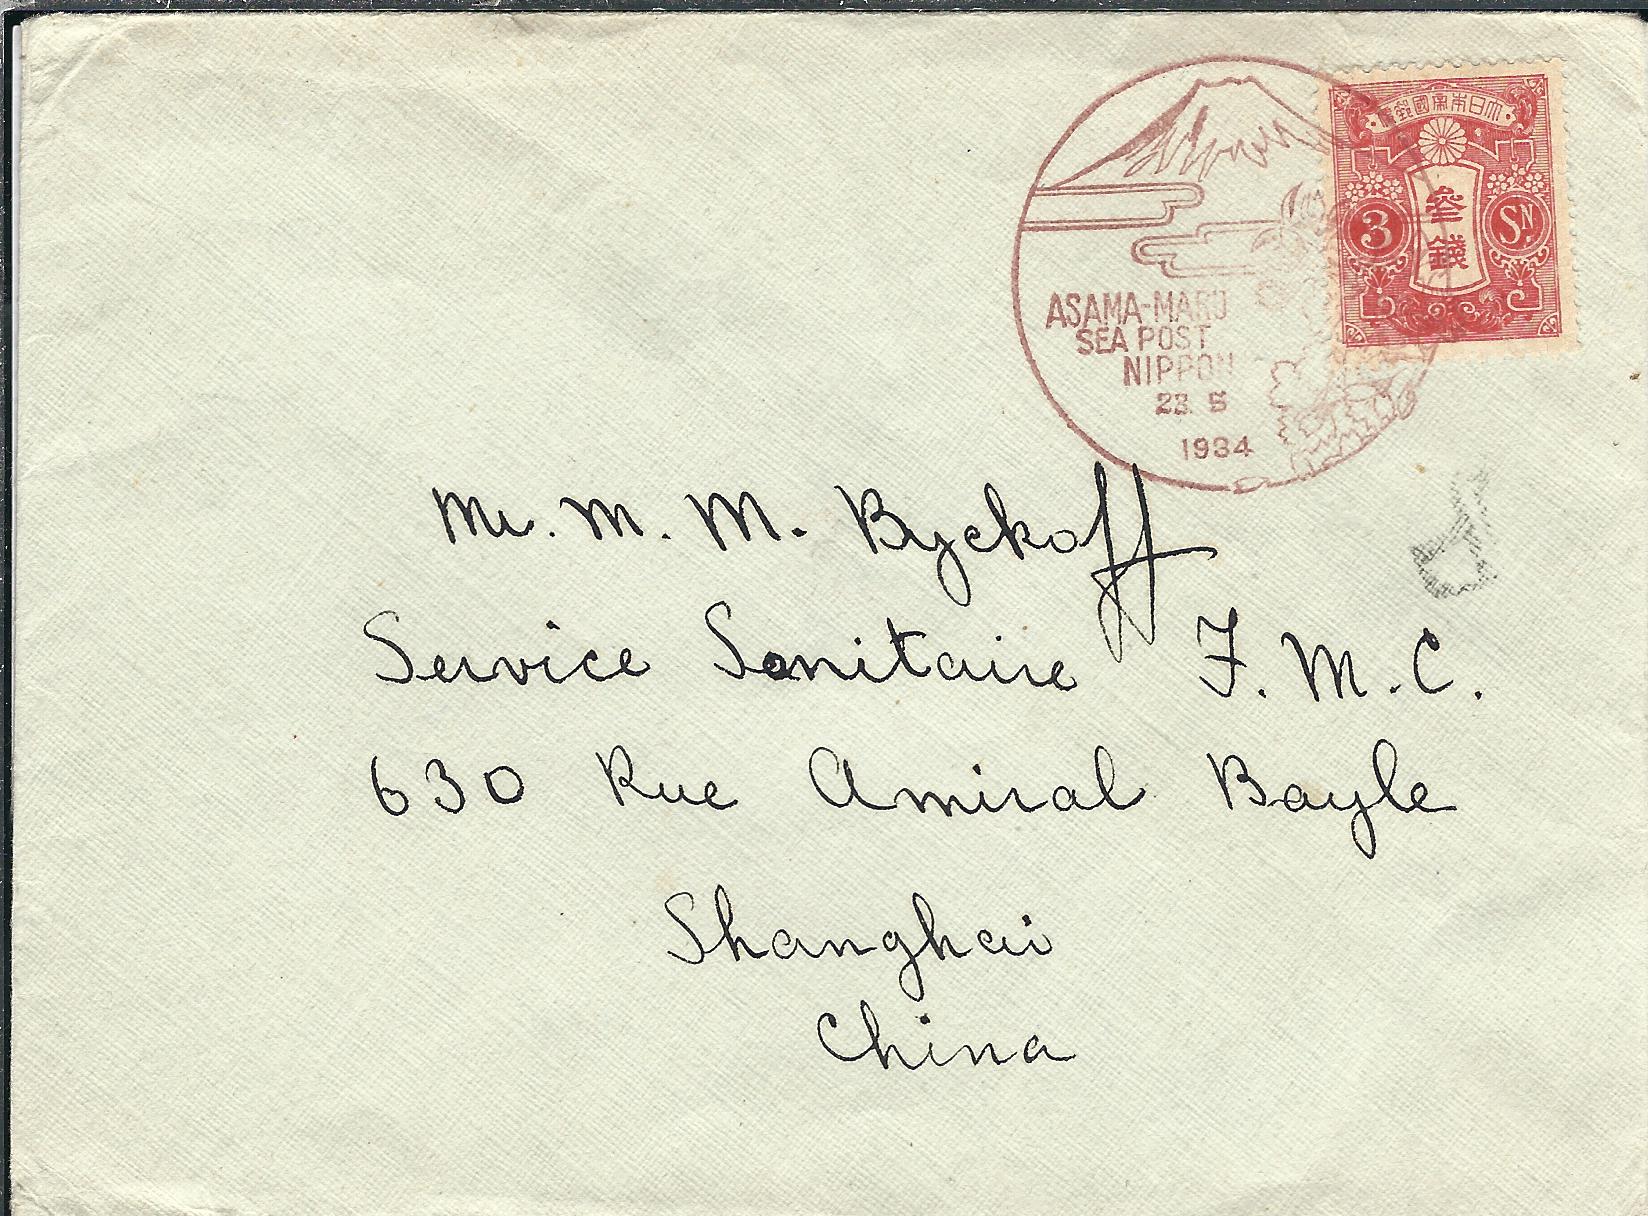 大日本帝國郵便
參
錢
3
Sn.
ASAMA-MARU
SEA POST
NIPPON
23. 5
1934
Mr. M. M. Byckoff
Service Sanitaire F. M. C.
630 Rue Amiral Bayle
Shanghai
China